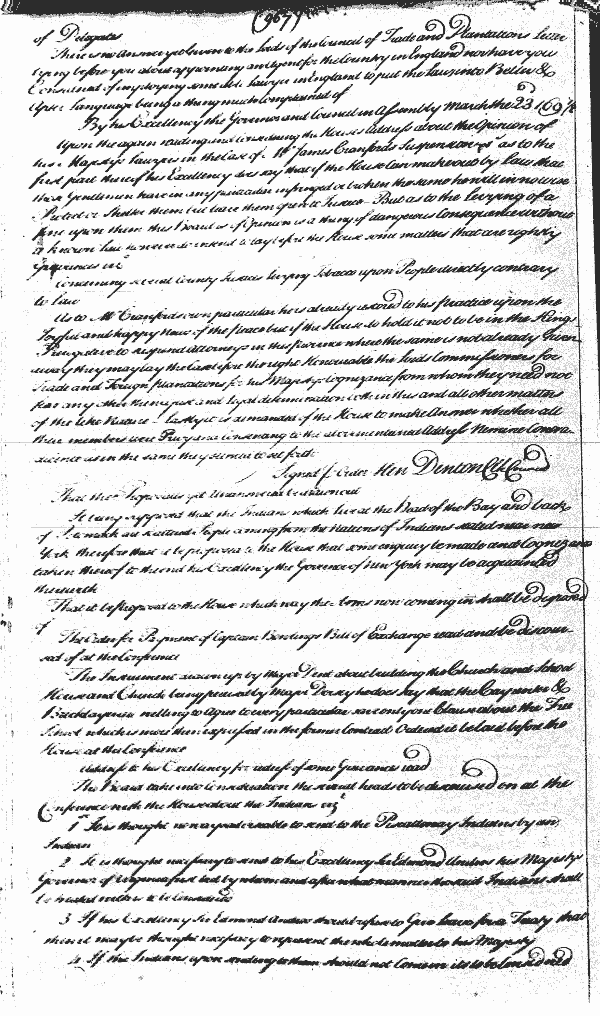 (967)
of Delegates
There is no Answer yet given to the Lords of the Council of Trade and Plantations Letter
lying before you about appointing an Agent for the Country in England nor have you
Considered of employing some able Lawyer in England to put the Laws into Better &
Language being a thing much Complained of
By his Excellency the Governor and Council in Assembly March the 23 1697/8
Upon the again reading and Considering the Houses Address about the Opinion of
his Majestys Lawyers in the Case of Mr James Cranfords Suspension as to the
first part thereof his Excellency does say that if the House can make out by Law that
those Gentlemen have in any particular infringed or broken the same he will in no wise
Protect or Shelter them but leave them open to Justice But as to the levying of a
fine upon them this Board is of Opinion is a thing of dangerous Consequence without
a known Law
Grievances
Concerning several County Justices levying Tobacco upon People directly contrary
to Law
As to Mr Cranfords own particular he is already restored to his practice upon the
Joyfull and happy News of the Peace but if the House do hold it not to be in the Kings
Prerogative to suspend Attorneys in this Province where the same is not already Given
away they may lay the Case before the right Honourable the Lords Commissioners for
Trade and Foreign plantations for his Majestys Cognizance from whom they need not
fear any other then a just and legal determination both in this and all other matters
of the like Nature Lastly it is demanded of the House to make Answer whether all
their members were Privy and Consenting to the aforementioned Address Nemine Contra-
dicente as in the same they seem to set forth
Signed p Order Hen Denton Cl Council
That the Proposals yet Unanswered be
It being supposed that the Indians which live at the Head of the Bay and back
of are Scattered People coming from the Nations of Indians seated near new
York therefore that it be proposed to the House that some enquiry be made and Cognizance
taken thereof to the end his Excellency the Governor of New York may be acquainted
therewith
That it be proposed to the House which way the Arms now coming in shall be disposed
of
The Order for Payment of Captain Bill of Exchange read and be discour-
sed of at the Conference
The Instrument drawn up by Major Dent about building the Church and School
House and Church being perused by Major Dorsey he does say that the Carpenter &
Bricklayer are willing to Agree to every particular save only one Clause about the Free
School which is more than expressed in the former Contract Ordered it be laid before the
House at the Conference
Address to his Excellency for redress of some Grievances read
The Board take into Consideration the several heads to be discoursed on at the
Conference with the House about the Indians viz
1 It is thought not adviseable to send to the Piscattaway Indians by an
Indian
2 It is thought necessary to send to his Excellency Sir Edmond Andros his Majestys
Governor of Virginia first but by whom and after what manner the said Indians shall
be treated withall to be Considered
3 If his Excellency Sir Edmund Andros should refuse to Give leave for a Treaty that
then it may be thought necessary to represent the whole matter to his Majesty
4 If the Indians upon sending to them should not Consent its to be Considered